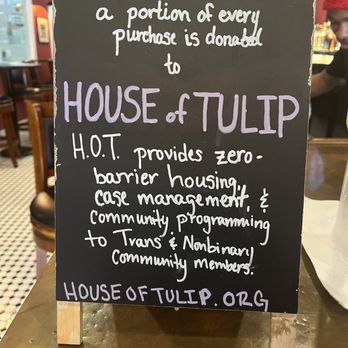 a portion of every
purchase is donated
to
HOUSE of TULIP
H.O.T. provides zero-
barrier housing,
case management, &
community programming
to Trans & Nonbinary
community members.
HOUSEOFTULIP.ORG